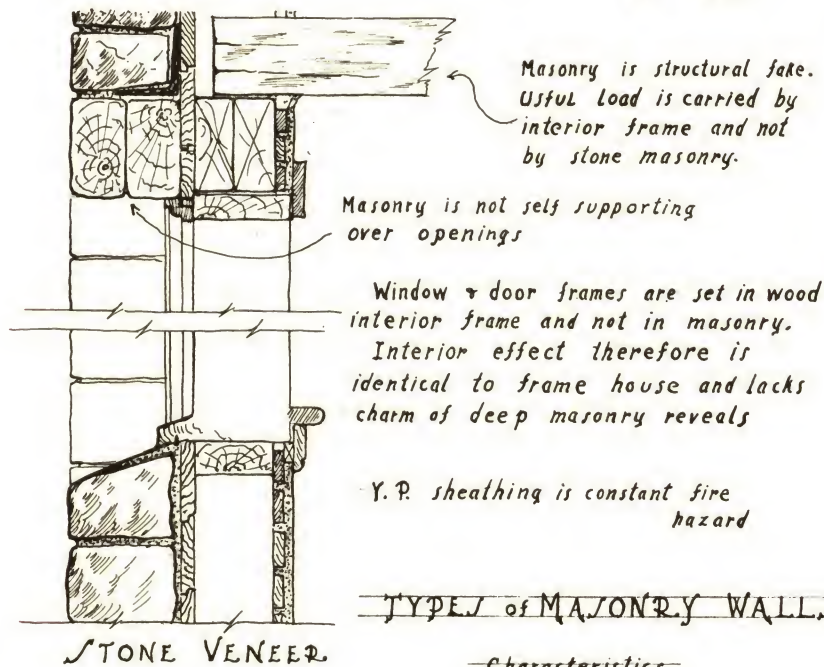 Masonry is structural fake.
Usful Load is carried by
interior frame and not
by stone masonry.
Masonry is not self supporting
over openings
Window & door frames are set in wood
interior frame and not in masonry.
Interior effect therefore is
identical to frame house and lacks
charm of deep masonry reveals
Y.P. sheathing is constant fire
hazard
TYPES of MASONRY WALL
STONE VENEER
Characteristics